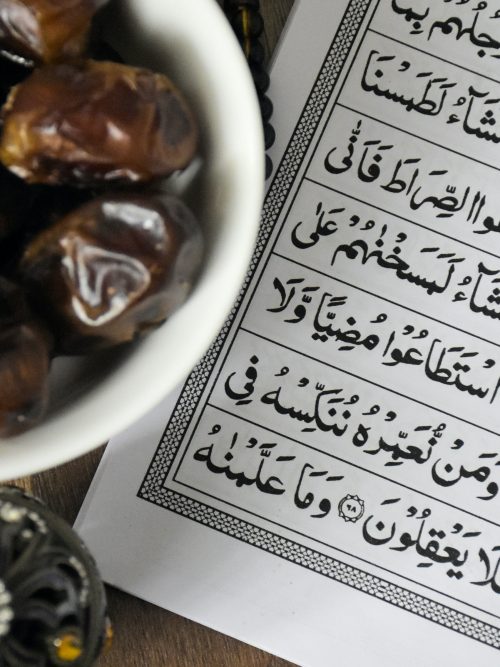 رْجُلُهُمْ بِمَا
شَآءُ لَطَمَسْنَا
وا الصِّرَاطَ فَاَنّٰى
شَآءُ لَمَسَخْنٰهُمْ عَلٰى
اسْتَطَاعُوْا مُضِيًّا وَّلَا
وَمَنْ نُّعَمِّرْهُ نُنَكِّسْهُ فِي
لَا يَعْقِلُوْنَ ۶۸ وَمَا عَلَّمْنٰهُ